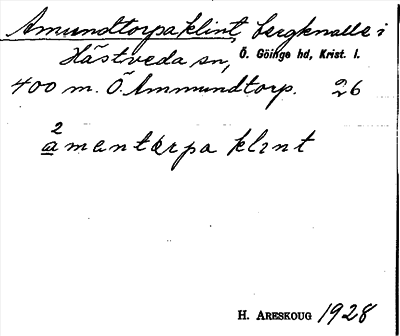 Amundtorpaklint, bergknalle i
Hästveda sn, Ö. Göinge hd, Krist. l.
400 m. Ö. Ammundtorp. 26
2
amantorpa klint
H. ARESKOUG 1928